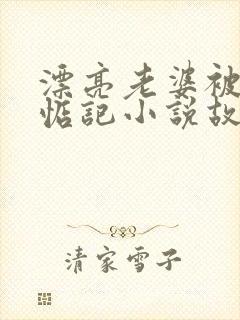 漂亮老婆被
惦記小説故
清家雪子